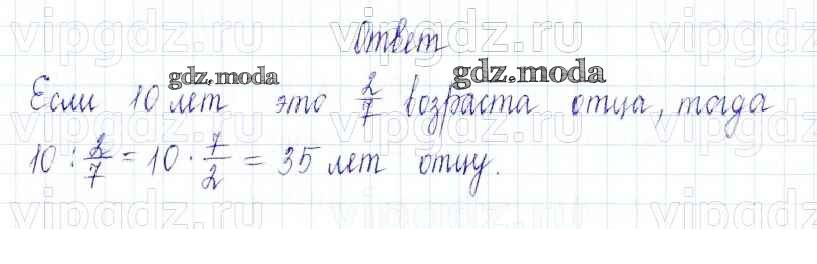 vipgdz.ru vipgdz.ru vipgdz.ru
Ответ
gdz.moda gdz.moda
Если 10 лет это 2/7 возраста отца, тогда
vipgdz.ru vipgdz.ru vipgdz.ru
10 : 2/7 = 10 · 7/2 = 35 лет отцу.
vipgdz.ru vipgdz.ru vipgdz.ru